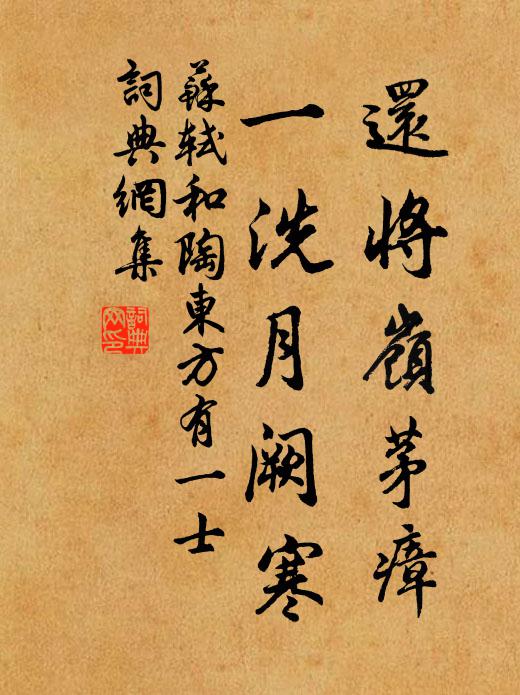 還將嶺茅瘴
一洗月闕寒
蘇軾和陶東方有一士
詞典網集
詞典網印